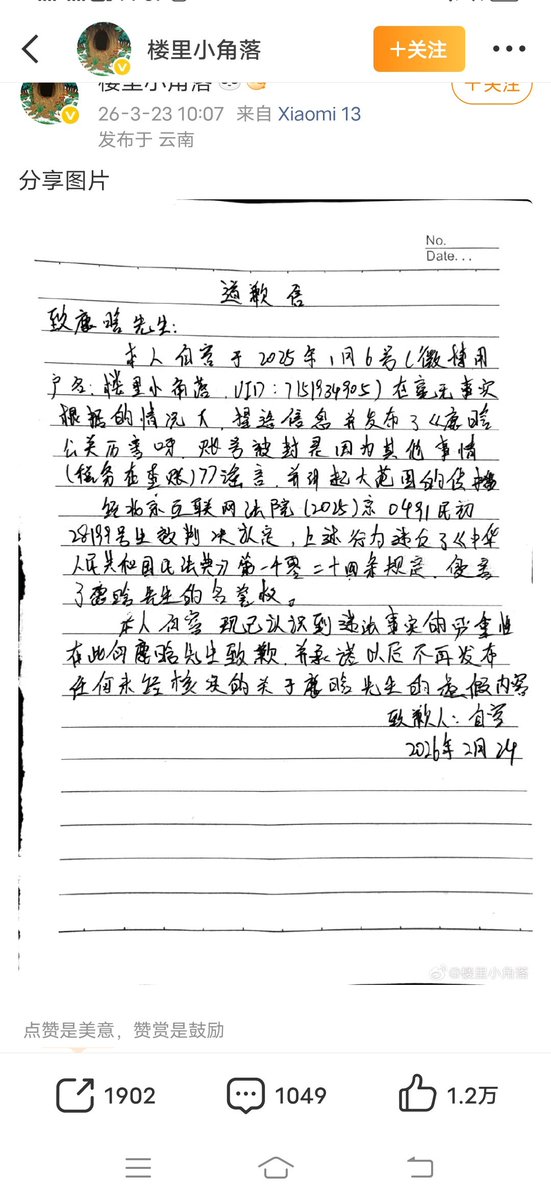 楼里小角落
+关注
楼里小角落
+关注
26-3-23 10:07 来自 Xiaomi 13
发布于 云南
分享图片
No.
Date...
道歉
致鹿晗先生:
本人 于2025年1月6号(微博用
户名:楼里小角落,UID:7151934905)在毫无事实
根据的情况下,捏造信息并发布了《鹿晗
公关厉害呀,账号被封是因为其他事情
(税务在查账)》谣言,并引起大范围的传播
经北京互联网法院(2025)京0491民初
28199号生效判决认定,上述行为违反了《中华
人民共和国民法典》第一千零二十四条规定,侵害
了鹿晗先生的名誉权。
本人 现已认识到违法事实的严重性
在此向鹿晗先生致歉,并承诺以后不再发布
任何未经核实的关于鹿晗先生的虚假内容
致歉人:
2026年2月24
@楼里小角落
点赞是美意,赞赏是鼓励
1902
1049
1.2万